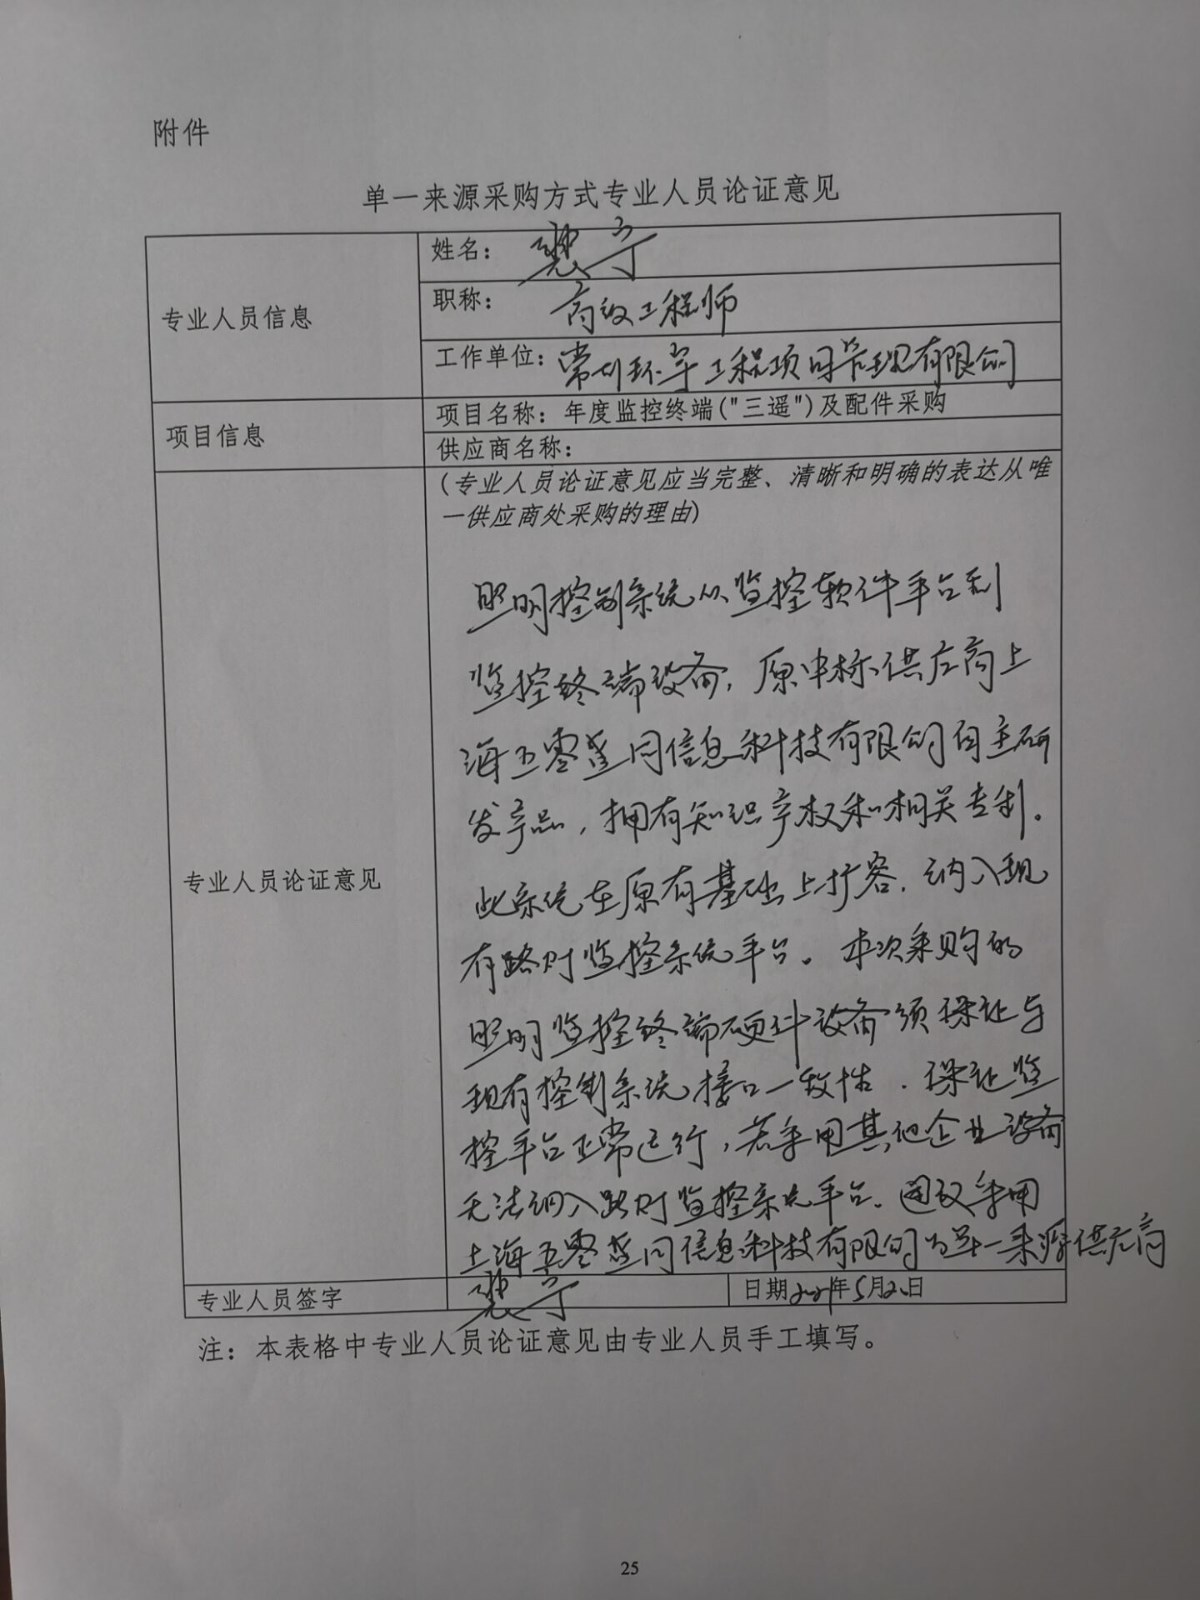 附件
单一来源采购方式专业人员论证意见
专业人员信息
姓名：
职称： 高级工程师
工作单位：常州环宇工程项目管理有限公司
项目信息
项目名称：年度监控终端("三遥")及配件采购
供应商名称：
专业人员论证意见
(专业人员论证意见应当完整、清晰和明确的表达从唯
一供应商处采购的理由)
照明控制系统从监控软件平台到
监控终端设备，原中标供应商上
海五零盛同信息科技有限公司自主研
发产品，拥有知识产权和相关专利。
此系统在原有基础上扩容，纳入现
有路灯监控系统平台。本次采购的
照明监控终端硬件设备须保证与
现有控制系统接口一致性，保证监
控平台正常运行，若采用其他企业设备
无法纳入路灯监控系统平台。建议采用
上海五零盛同信息科技有限公司为单一来源供应商
专业人员签字
日期2021年5月20日
注：本表格中专业人员论证意见由专业人员手工填写。
25